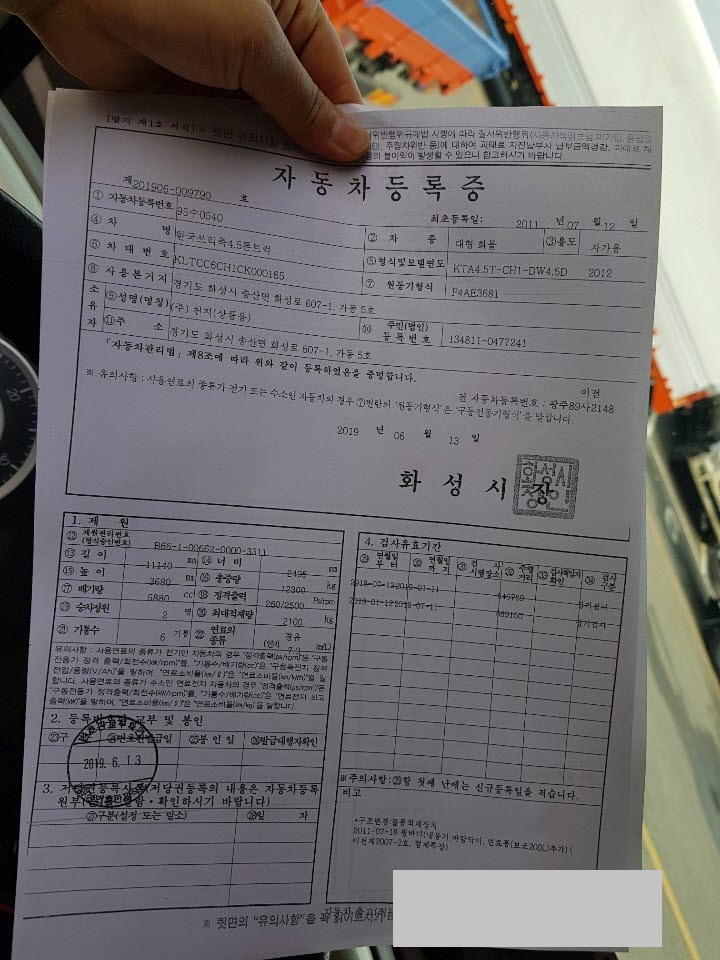 [별지 제1호 서식] ※ 뒷면 유의사항
위반행위규제법 시행에 따라 질서위반행위(자동차책임보험 미가입,
주정차위반 등)에 대하여 과태료 자진납부시 납부금액경감, 과태료 체
등의 불이익이 발생할 수 있으니 참고하시기 바랍니다.
자동차등록증
제201906-009790 호
최초등록일: 2011 년 07 월 12 일
① 자동차등록번호 95수0540 ② 차 종 대형 화물 ③용도 자가용
④ 차 명 한국쓰리축4.5톤트럭 ⑤형식및모델연도 KTA4.5T-CH1-DW4.5D 2012
⑥ 차 대 번 호 KLTCC6CH1CK000165 ⑦ 원동기형식 F4AE3681
⑧ 사용본거지 경기도 화성시 송산면 화성로 607-1, 가동 5호
소유자 ⑨성명(명칭) (주) 천지(상품용) ⑩ 주민(법인)등록번호 134811-0477241
⑪주 소 경기도 화성시 송산면 화성로 607-1, 가동 5호
「자동차관리법」제8조에 따라 위와 같이 등록하였음을 증명합니다.
이전
전 자동차등록번호 : 광주89사2148
※ 유의사항 : 사용연료의 종류가 전기 또는 수소인 자동차의 경우 ⑦번란의 '원동기형식'은 '구동전동기형식'을 말합니다.
2019 년 06 월 13 일
화 성 시 장
1. 제 원
⑫ 제원관리번호 (형식승인번호) B65-1-00662-0000-3311
⑬ 길 이 11140 mm ⑭ 너 비 2495 mm
⑮ 높 이 3680 mm ⑯ 총중량 12300 kg
⑰ 배기량 5880 cc ⑱ 정격출력 260/2500 Ps/rpm
⑲ 승차정원 2 명 ⑳ 최대적재량 2100 kg
㉑ 기통수 6 기통 ㉒ 연료의 종류 경유
유의사항 : 사용연료의 종류가 전기인 자동차의 경우 "정격출력(ps/rpm)"은 "구동
전동기 정격 출력/회전수(kW/rpm)"를, "기통수/배기량(cc)"은 "구동축전지 정격
전압/용량(V/Ah)"을 말하며, "연료소비율(km/ℓ)"은 "연료소비율(km/kWh)"를 말
합니다. 사용연료의 종류가 수소인 연료전지 자동차의 경우 "정격출력(ps/rpm)"은
"구동전동기 정격출력/회전수(kW/rpm)"를, "기통수/배기량(cc)"은 "연료전지 최고
출력(kW)"을 말하며, "연료소비율(km/ℓ)"은 "연료소비율(km/kg)"을 말합니다.
2. 등록번호판 교부 및 봉인
㉓구 분 ㉔번호판발급일 ㉕봉 인 일 ㉖발급대행자확인
2019. 6. 13
3. 저당권등록사실(저당권등록의 내용은 자동차등록
원부(을)를 열람·확인하시기 바랍니다)
㉗구분(설정 또는 말소) ㉘일 자
4. 검사유효기간
㉙ 연월일 부터 ㉚ 연월일 까지 ㉛ 검 사 시행장소 ㉜ 주행거리 ㉝ 검사책임자 확인 ㉞ 검사구분
2018-07-12 2019-01-11
2019-01-12 2019-07-11
※주의사항:㉙항 첫째 난에는 신규등록일을 적습니다.
비고
*구조변경:물품적재장치
2011-07-18 윙바디(냉동기,바람막이, 연료통(보조200L)추가) (
※ 뒷면의 "유의사항"을 꼭 읽어보시기